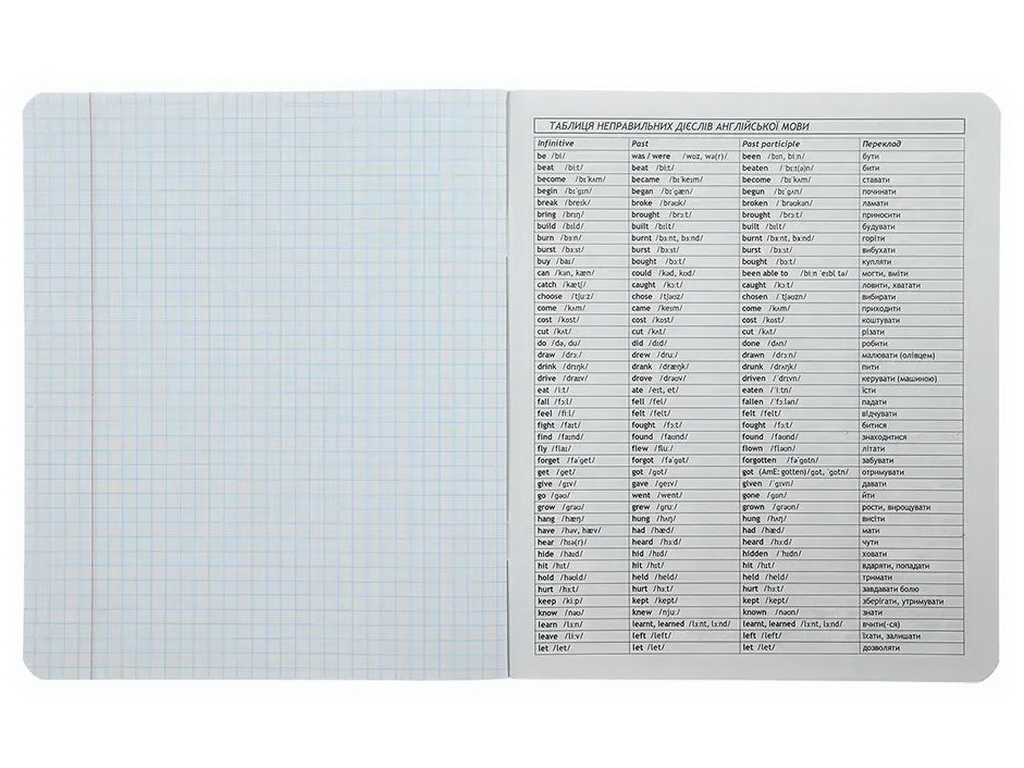 ТАБЛИЦЯ НЕПРАВИЛЬНИХ ДІЄСЛІВ АНГЛІЙСЬКОЇ МОВИ
Infinitive Past Past participle Переклад
be /bi/ was / were /wɒz, wə(r)/ been /bɪn, biːn/ бути
beat /biːt/ beat /biːt/ beaten /ˈbiːt(ə)n/ бити
become /bɪˈkʌm/ became /bɪˈkeɪm/ become /bɪˈkʌm/ ставати
begin /bɪˈgɪn/ began /bɪˈgæn/ begun /bɪˈgʌn/ починати
break /breɪk/ broke /brəʊk/ broken /ˈbrəʊkən/ ламати
bring /brɪŋ/ brought /brɔːt/ brought /brɔːt/ приносити
build /bɪld/ built /bɪlt/ built /bɪlt/ будувати
burn /bɜːn/ burnt /bɜːnt, bɜːnd/ burnt /bɜːnt, bɜːnd/ горіти
burst /bɜːst/ burst /bɜːst/ burst /bɜːst/ вибухати
buy /baɪ/ bought /bɔːt/ bought /bɔːt/ купляти
can /kən, kæn/ could /kəd, kʊd/ been able to /biːn ˈeɪbl tə/ могти, вміти
catch /kætʃ/ caught /kɔːt/ caught /kɔːt/ ловити, хватати
choose /tʃuːz/ chose /tʃəʊz/ chosen /ˈtʃəʊzn/ вибирати
come /kʌm/ came /keɪm/ come /kʌm/ приходити
cost /kɒst/ cost /kɒst/ cost /kɒst/ коштувати
cut /kʌt/ cut /kʌt/ cut /kʌt/ різати
do /də, du/ did /dɪd/ done /dʌn/ робити
draw /drɔː/ drew /druː/ drawn /drɔːn/ малювати (олівцем)
drink /drɪŋk/ drank /dræŋk/ drunk /drʌŋk/ пити
drive /draɪv/ drove /drəʊv/ driven /ˈdrɪvn/ керувати (машиною)
eat /iːt/ ate /eɪt, et/ eaten /ˈiːtn/ їсти
fall /fɔːl/ fell /fel/ fallen /ˈfɔːlən/ падати
feel /fiːl/ felt /felt/ felt /felt/ відчувати
fight /faɪt/ fought /fɔːt/ fought /fɔːt/ битися
find /faɪnd/ found /faʊnd/ found /faʊnd/ знаходитися
fly /flaɪ/ flew /fluː/ flown /fləʊn/ літати
forget /fəˈget/ forgot /fəˈgɒt/ forgotten /fəˈgɒtn/ забувати
get /get/ got /gɒt/ got (AmE: gotten) /gɒt, ˈgɒtn/ отримувати
give /gɪv/ gave /geɪv/ given /ˈgɪvn/ давати
go /gəʊ/ went /went/ gone /gɒn/ йти
grow /grəʊ/ grew /gruː/ grown /grəʊn/ рости, вирощувати
hang /hæŋ/ hung /hʌŋ/ hung /hʌŋ/ висіти
have /həv, hæv/ had /hæd/ had /hæd/ мати
hear /hɪə(r)/ heard /hɜːd/ heard /hɜːd/ чути
hide /haɪd/ hid /hɪd/ hidden /ˈhɪdn/ ховати
hit /hɪt/ hit /hɪt/ hit /hɪt/ вдаряти, попадати
hold /həʊld/ held /held/ held /held/ тримати
hurt /hɜːt/ hurt /hɜːt/ hurt /hɜːt/ завдавати болю
keep /kiːp/ kept /kept/ kept /kept/ зберігати, утримувати
know /nəʊ/ knew /njuː/ known /nəʊn/ знати
learn /lɜːn/ learnt, learned /lɜːnt, lɜːnd/ learnt, learned /lɜːnt, lɜːnd/ вчити(-ся)
leave /liːv/ left /left/ left /left/ їхати, залишати
let /let/ let /let/ let /let/ дозволяти